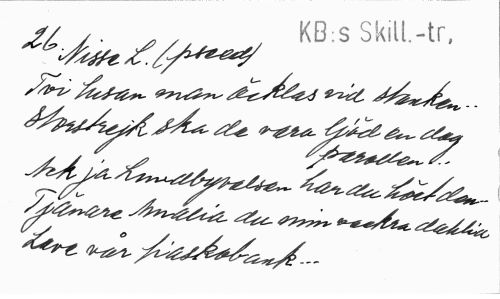 KB:s Skill.-tr,
26. Nisse L. (pseud)
Tvi lusan man äcklas vid stanken..
Storstrejk ska de vara ljöd en dag
parollen..
Ack ja Lundbyvalsen har du hört den..
Tjänare Amalia du min vackra dahlia
Leve vår piaskobank...